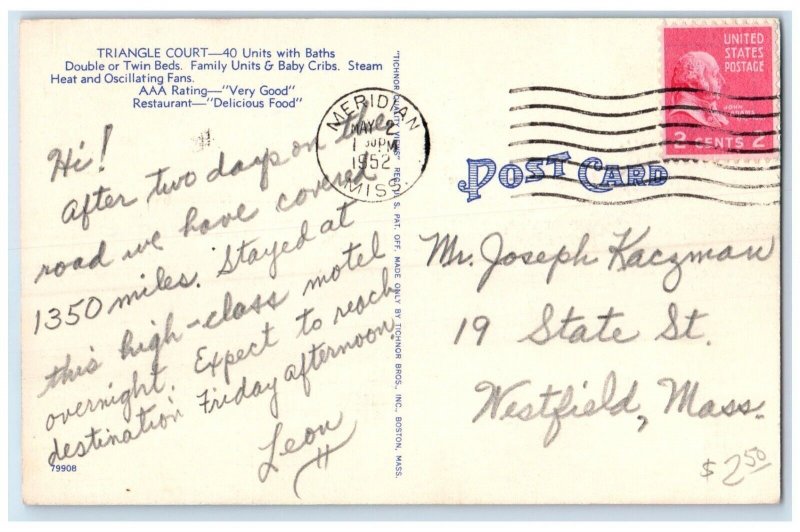 TRIANGLE COURT—40 Units with Baths
Double or Twin Beds. Family Units & Baby Cribs. Steam
Heat and Oscillating Fans.
AAA Rating—"Very Good"
Restaurant—"Delicious Food"
Hi!
After two days on the
road we have covered
1350 miles. Stayed at
this high-class motel
overnight. Expect to reach
destination Friday afternoon.
Leon
79908
"TICHNOR QUALITY VIEWS" REG. U. S. PAT. OFF. MADE ONLY BY TICHNOR BROS., INC., BOSTON, MASS.
MERIDIAN
MAY 2
1 30 PM
1952
MISS.
UNITED
STATES
POSTAGE
JOHN
ADAMS
2 CENTS 2
POST CARD
Mr. Joseph Kaczman
19 State St.
Westfield, Mass.
$2.50